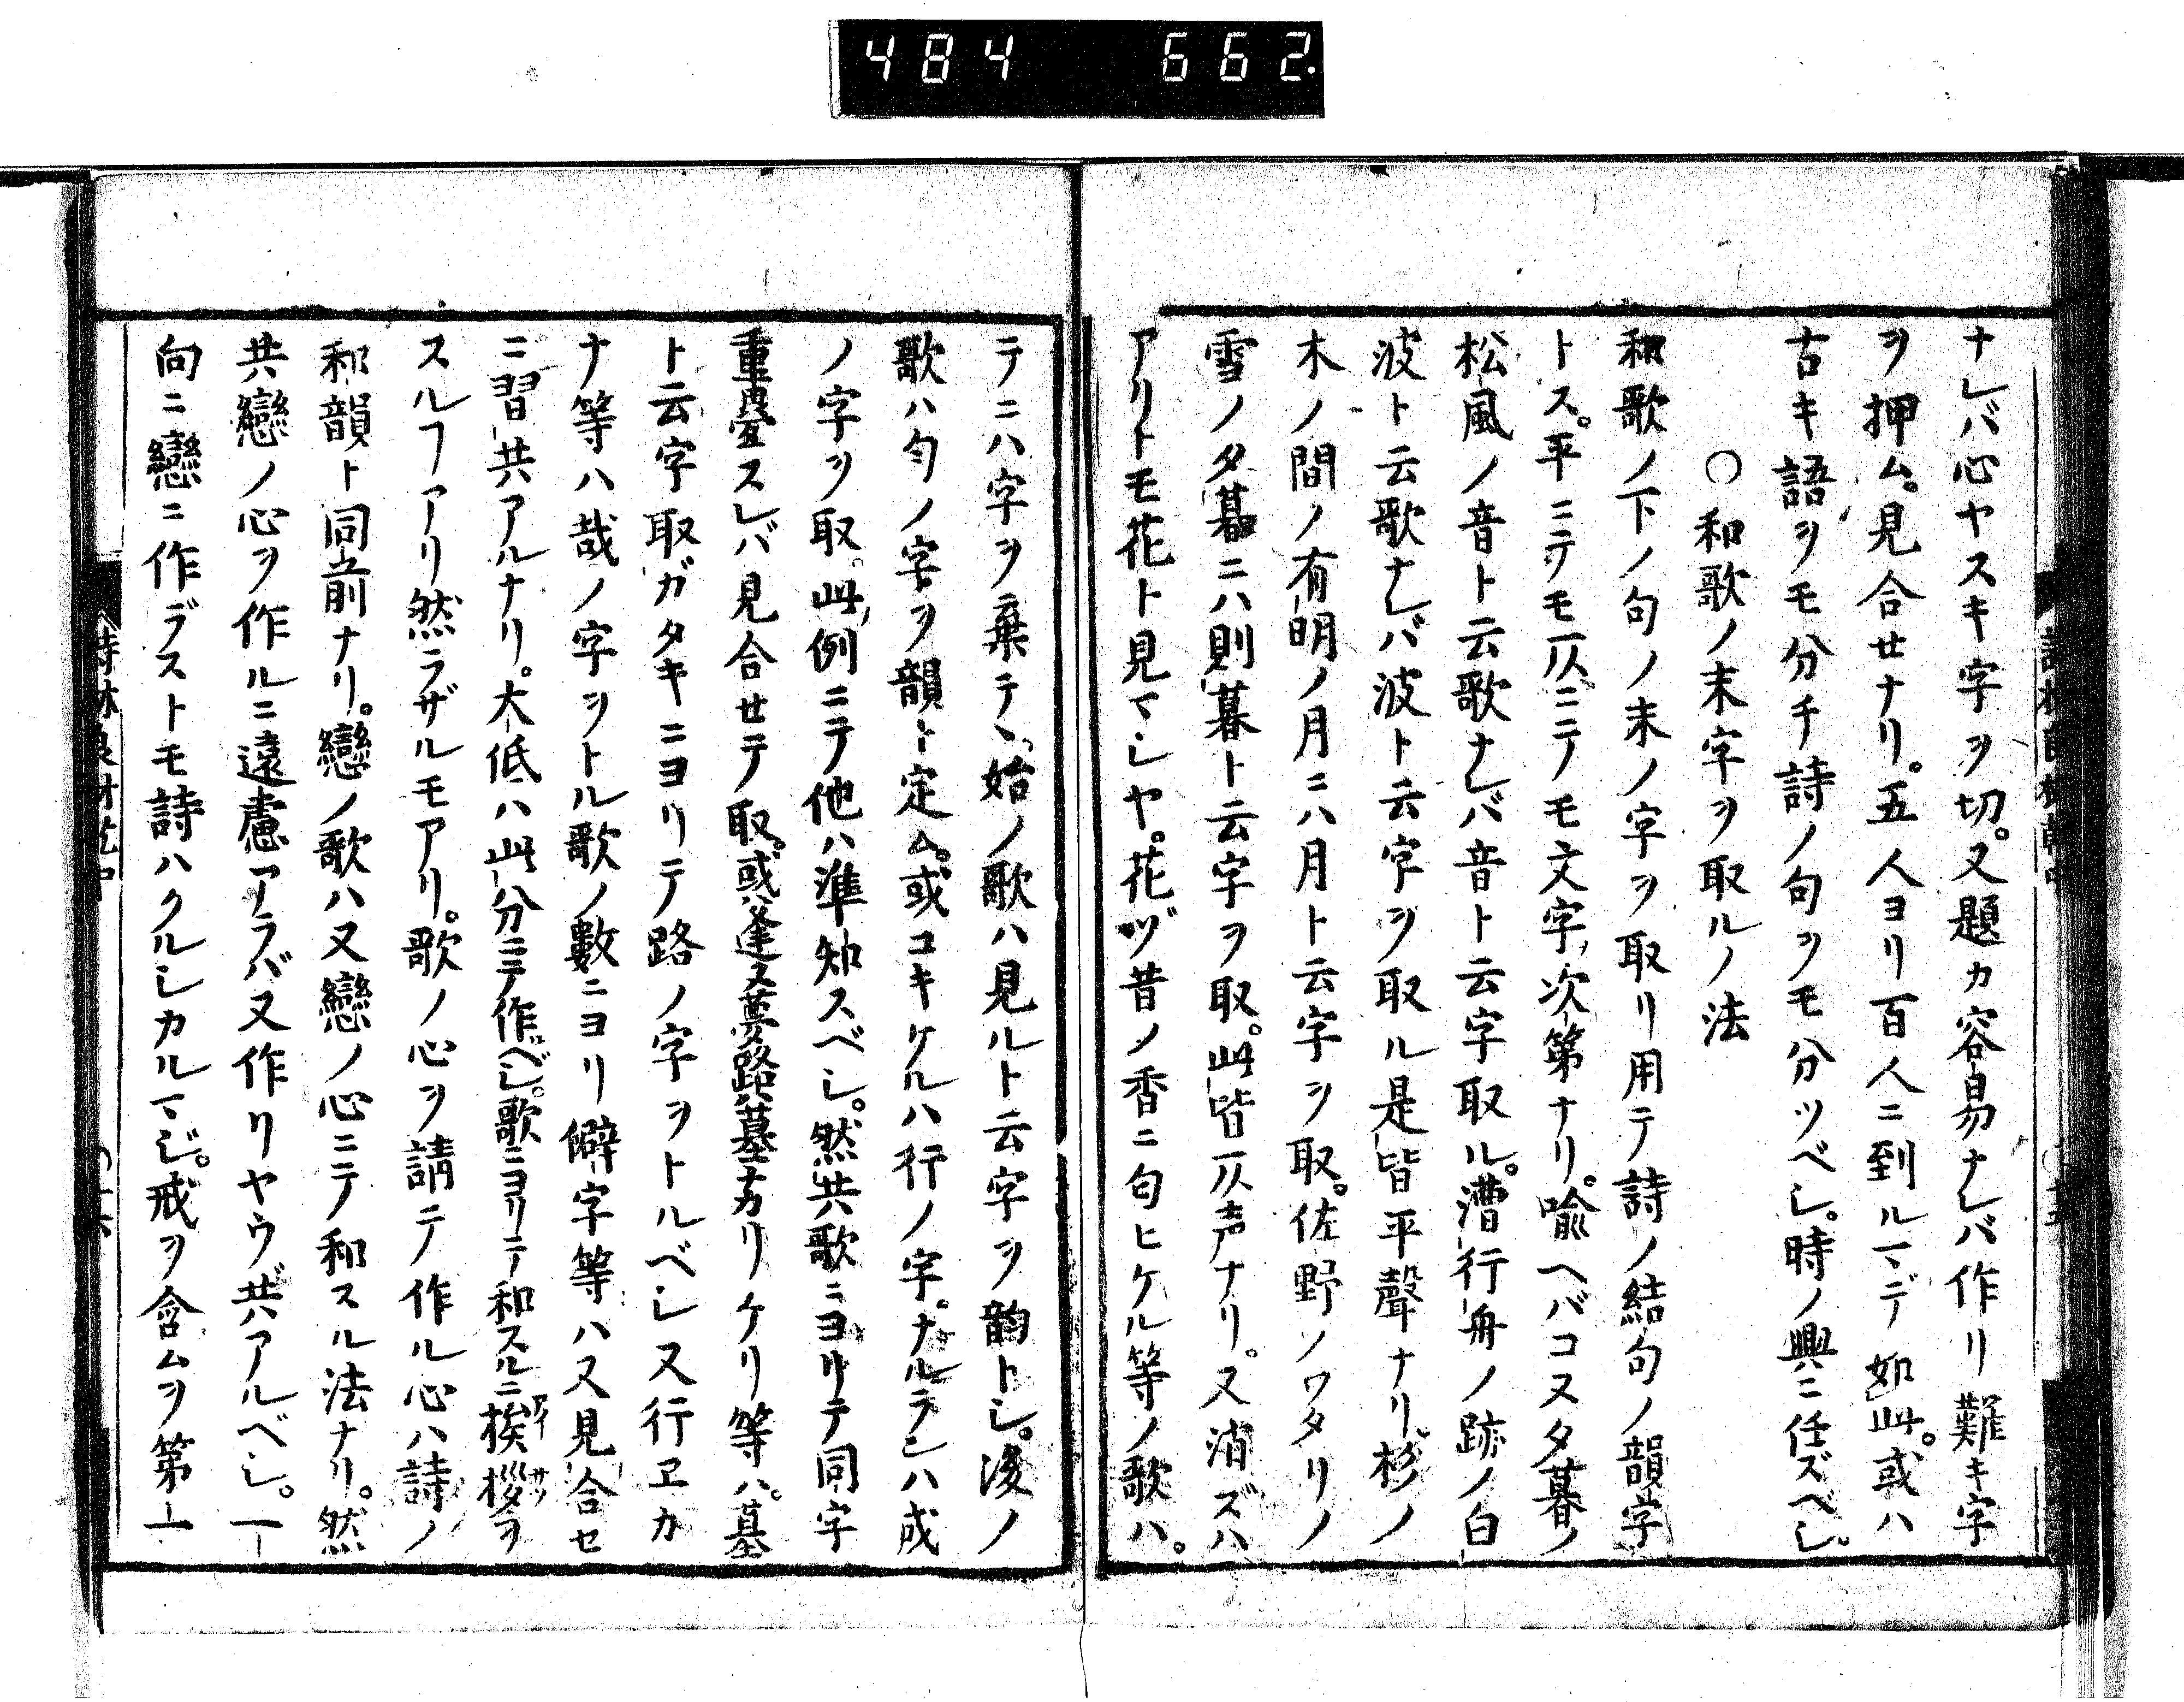 484 662.
ナレバ心ヤスキ字ヲ切。又題カ容易ナレバ作リ難キ字
ヲ押ム。見合セナリ。五人ヨリ百人ニ到ルマデ如此。或ハ
古キ語ヲモ分チ詩ノ句ヲモ分ツベシ。時ノ興ニ任ズベシ。
〇和歌ノ末字ヲ取ルノ法
和歌ノ下ノ句ノ末ノ字ヲ取リ用テ詩ノ結句ノ韻字
トス。平ニテモ仄ニテモ文字次第ナリ。喩ヘバコヌ夕暮ノ
松風ノ音ト云歌ナレバ音ト云字取ル。漕行舟ノ跡ノ白
波ト云歌ナレバ波ト云字ヲ取ル是皆平聲ナリ。杉ノ
木ノ間ノ有明ノ月ニハ月ト云字ヲ取。佐野ノワタリノ
雪ノ夕暮ニハ則暮ト云字ヲ取。此皆仄声ナリ。又消ズハ
アリトモ花ト見マシヤ。花ヅ昔ノ香ニ匂ヒケル等ノ歌ハ。
テニハ字ヲ棄テヽ始ノ歌ハ見ルト云字ヲ韵トシ。後ノ
歌ハ匂ノ字ヲ韻ト定ム。或コキケルハ行ノ字。ナルランハ成
ノ字ヲ取。此例ニテ他ハ準知スベシ。然共歌ニヨリテ同字
重疊スレバ見合セテ取。或ハ逢又夢路墓ナカリケリ等ハ。墓
ト云字取ガタキニヨリテ路ノ字ヲトルベシ又行ヱカ
ナ等ハ哉ノ字ヲトル歌ノ數ニヨリ僻字等ハ又見合セ
ニ習共アルナリ。大低ハ此分ニテ作ベシ。歌ニヨリテ和スルニ挨拶ヲ
スルヿアリ然ラザルモアリ。歌ノ心ヲ請テ作ル心ハ詩ノ
和韻ト同前ナリ。戀ノ歌ハ又戀ノ心ニテ和スル法ナリ。然
共戀ノ心ヲ作ルニ遠慮アラバ又作リヤウ共アルベシ。一
向ニ戀ニ作ラズトモ詩ハクルシカルマジ。戒ヲ含ムヲ第一